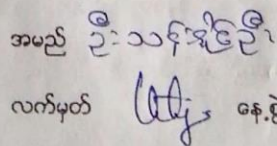 အမည် ဦးသန်းနိုင်ဦး
လက်မှတ် နေ့စွဲ